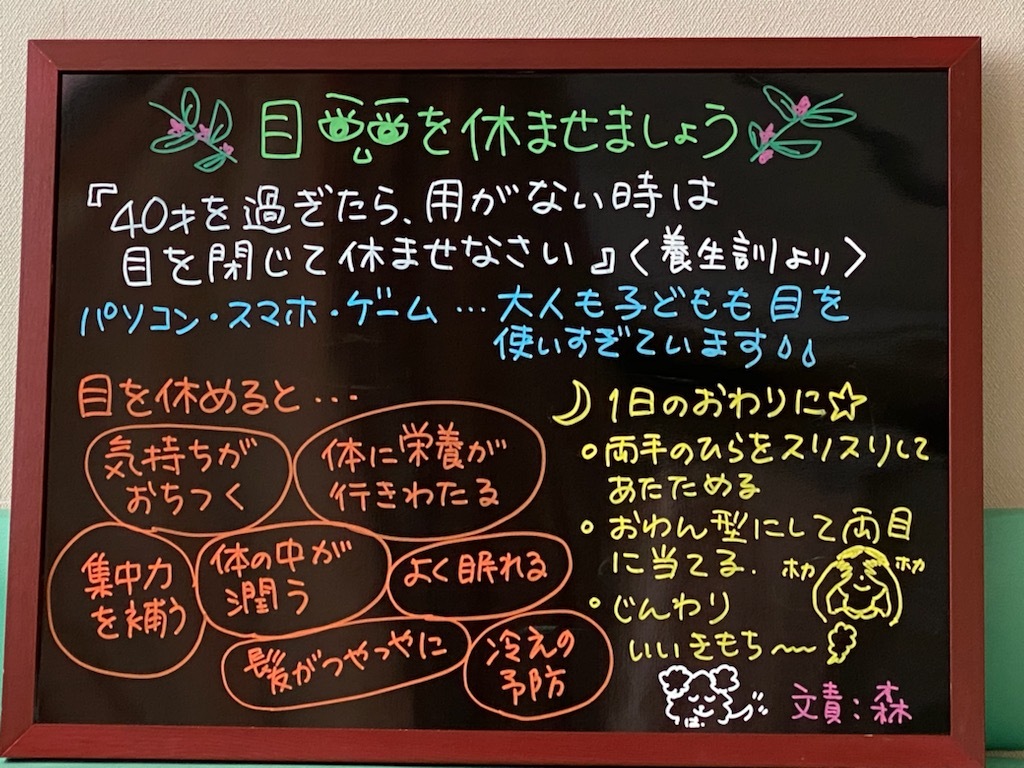 目を休ませましょう
『40才を過ぎたら、用がない時は
目を閉じて休ませなさい』〈養生訓より〉
パソコン・スマホ・ゲーム…大人も子どもも目を
使いすぎています
目を休めると…
気持ちが
おちつく
体に栄養が
行きわたる
集中力
を補う
体の中が
潤う
よく眠れる
髪がつやつやに
冷えの
予防
1日のおわりに☆
○両手のひらをスリスリして
あたためる
○おわん型にして両目
に当てる.
ホカ
ホカ
○じんわり
いいきもち〜
は、
文責:森